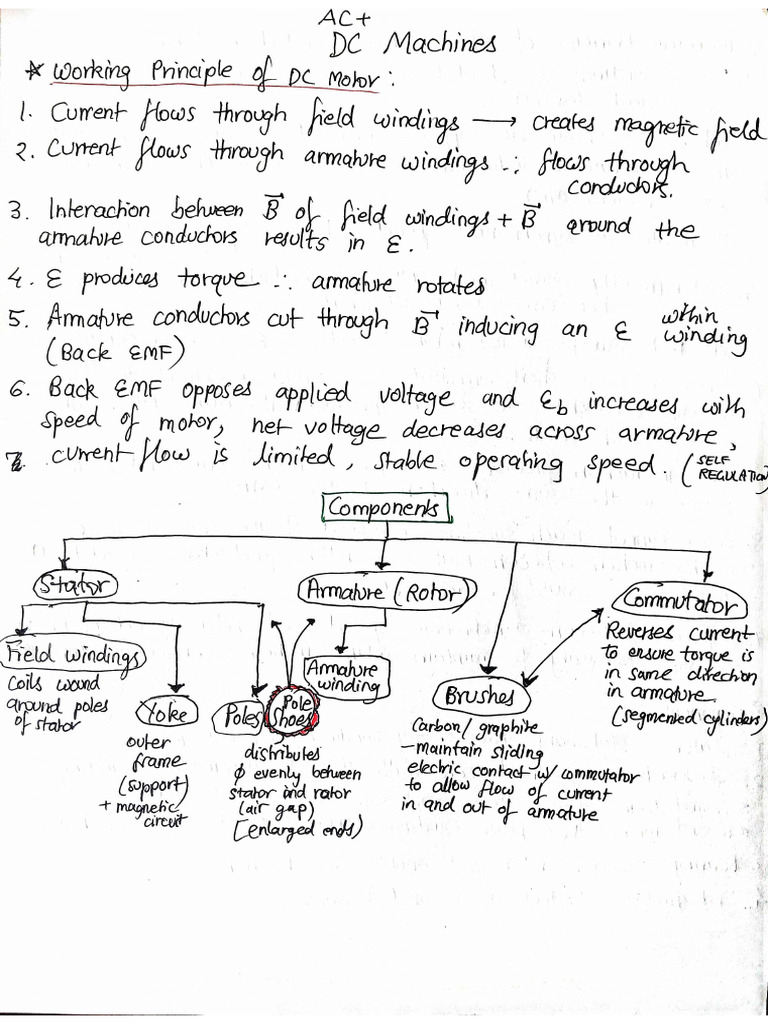 AC+
DC Machines
* Working Principle of DC Motor:
1. Current flows through field windings → creates magnetic field
2. Current flows through armature windings ∴ flows through
conductors.
3. Interaction between B⃗ of field windings + B⃗ around the
armature conductors results in ε.
4. ε produces torque ∴ armature rotates
5. Armature conductors cut through B⃗ inducing an ε within
winding
(Back EMF)
6. Back EMF opposes applied voltage and εb increases with
speed of motor, net voltage decreases across armature,
7. current flow is limited, stable operating speed. (SELF
REGULATION)
Components
Stator
Armature (Rotor)
Commutator
Reverses current
to ensure torque is
in same direction
in armature
(segmented cylinders)
Field windings
Coils wound
around poles
of stator
Yoke
outer
frame
(support)
+ magnetic
circuit
Poles
Pole
Shoes
distributes
ϕ evenly between
stator and rotor
(air gap)
[enlarged ends)
Armature
winding
Brushes
Carbon/graphite
- maintain sliding
electric contact w/ commutator
to allow flow of current
in and out of armature